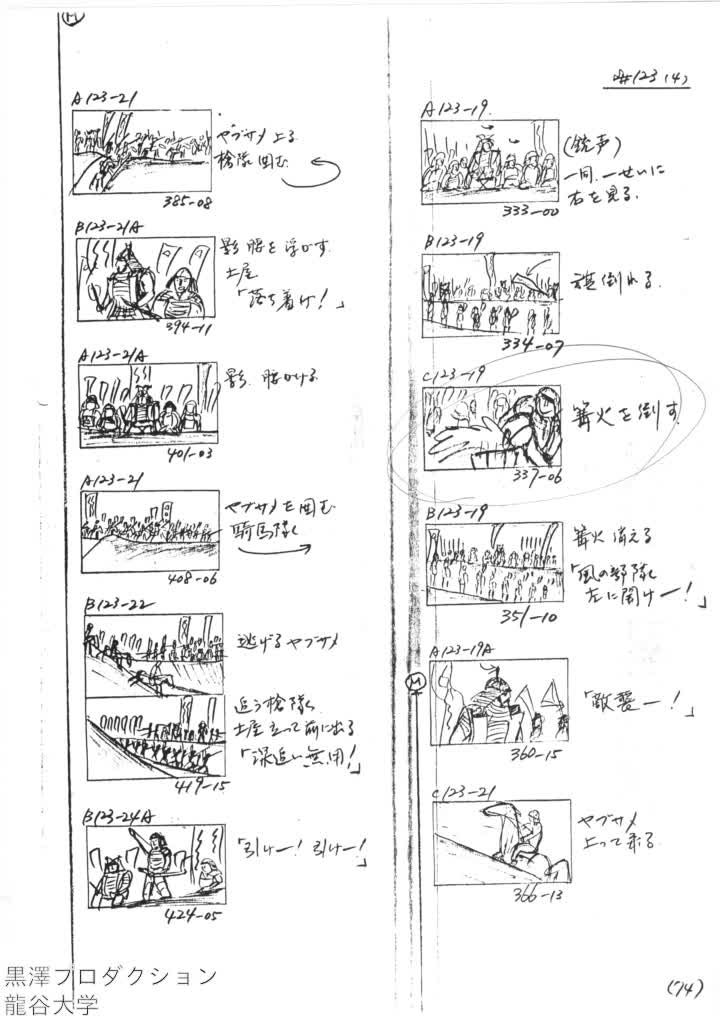 #123(4)
A123-19
(銃声)
一同、一せいに
右を見る.
333-00
B123-19
旗倒れる.
334-07
C123-19
篝火を倒す.
337-06
B123-19
篝火消える
「風の部隊
左に開けー!」
351-10
M
A123-19A
「敵襲ー!」
360-15
C123-21
ヤブサメ
上って来る
366-13
M
A123-21
ヤブサメ上る
槍隊囲む
385-08
B123-21A
影腰を浮かす.
土屋
「落ち着け!」
394-11
A123-21A
影、腰かける.
401-03
A123-21
ヤブサメを囲む
騎馬隊
408-06
B123-22
逃げるヤブサメ
追う槍隊
土屋立って前に出る
「深追い無用!」
419-15
B123-24A
「引けー!引けー!」
424-05
(74)
黒澤プロダクション
龍谷大学